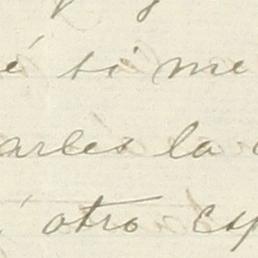 é si me
arles la
otro esp